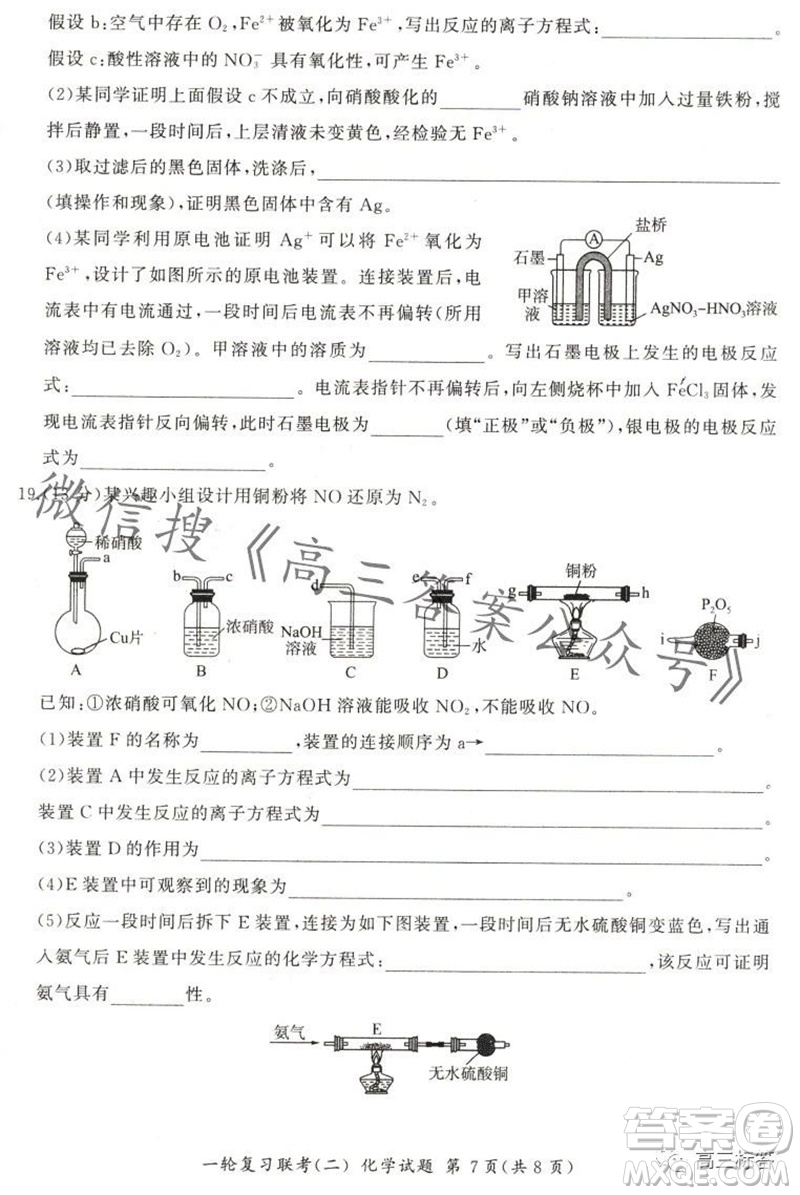 假设b:空气中存在O₂,Fe²⁺被氧化为Fe³⁺,写出反应的离子方程式:________。
假设c:酸性溶液中的NO₃⁻具有氧化性,可产生Fe³⁺。
(2)某同学证明上面假设c不成立,向硝酸酸化的________硝酸钠溶液中加入过量铁粉,搅
拌后静置,一段时间后,上层清液未变黄色,经检验无Fe³⁺。
(3)取过滤后的黑色固体,洗涤后,________
(填操作和现象),证明黑色固体中含有Ag。
(4)某同学利用原电池证明Ag⁺可以将Fe²⁺氧化为
Fe³⁺,设计了如图所示的原电池装置。连接装置后,电
流表中有电流通过,一段时间后电流表不再偏转(所用
溶液均已去除O₂)。甲溶液中的溶质为________。写出石墨电极上发生的电极反应
盐桥
A
石墨
Ag
甲溶
液
AgNO₃-HNO₃溶液
式:________。电流表指针不再偏转后,向左侧烧杯中加入FeCl₃固体,发
现电流表指针反向偏转,此时石墨电极为________(填“正极”或“负极”),银电极的电极反应
式为________。
19.(13分)某兴趣小组设计用铜粉将NO还原为N₂。
稀硝酸
a
Cu片
A
b c
浓硝酸
B
d
NaOH
溶液
C
e f
水
D
铜粉
g h
E
P₂O₅
i j
F
已知:①浓硝酸可氧化NO;②NaOH溶液能吸收NO₂,不能吸收NO。
(1)装置F的名称为________,装置的连接顺序为a→________
(2)装置A中发生反应的离子方程式为________,
装置C中发生反应的离子方程式为________。
(3)装置D的作用为________。
(4)E装置中可观察到的现象为________。
(5)反应一段时间后拆下E装置,连接为如下图装置,一段时间后无水硫酸铜变蓝色,写出通
入氨气后E装置中发生反应的化学方程式:________,该反应可证明
氨气具有________性。
氨气
E
无水硫酸铜
一轮复习联考(二) 化学试题 第7页(共8页)
微信搜《高三答案公众号》
答案圈
MXQE.COM
高三标答